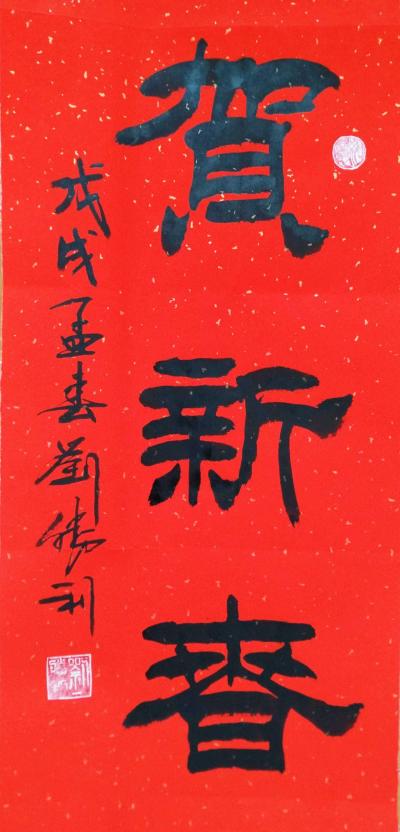 賀新春
戊戌孟春劉勝利